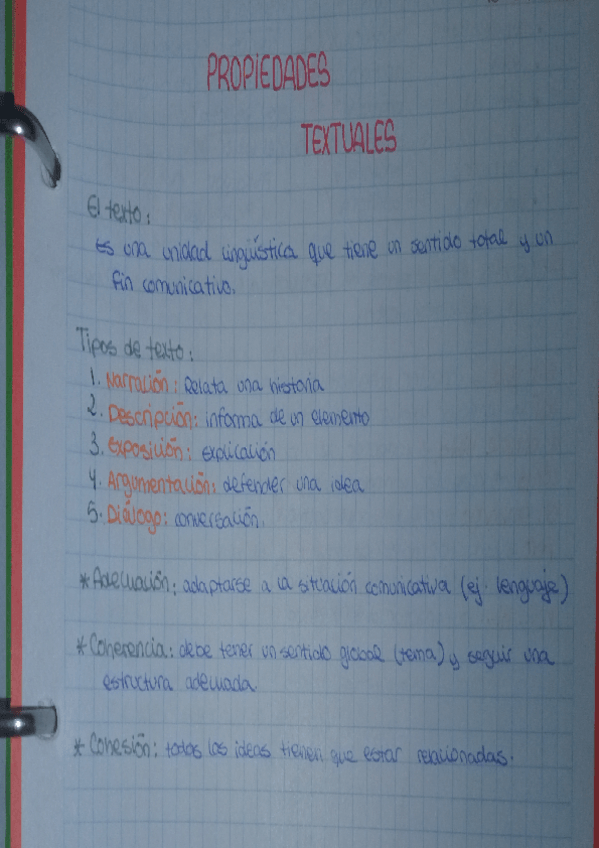 PROPIEDADES
TEXTUALES
El texto:
Es una unidad lingüística que tiene un sentido total y un
fin comunicativo.
Tipos de texto:
1. Narración: Relata una historia
2. Descripción: informa de un elemento
3. Exposición: explicación
4. Argumentación: defender una idea
5. Diálogo: conversación.
* Adecuación: adaptarse a la situación comunicativa (ej. lenguaje)
* Coherencia: debe tener un sentido global (tema) y seguir una
estructura adecuada.
* Cohesión: todas las ideas tienen que estar relacionadas.